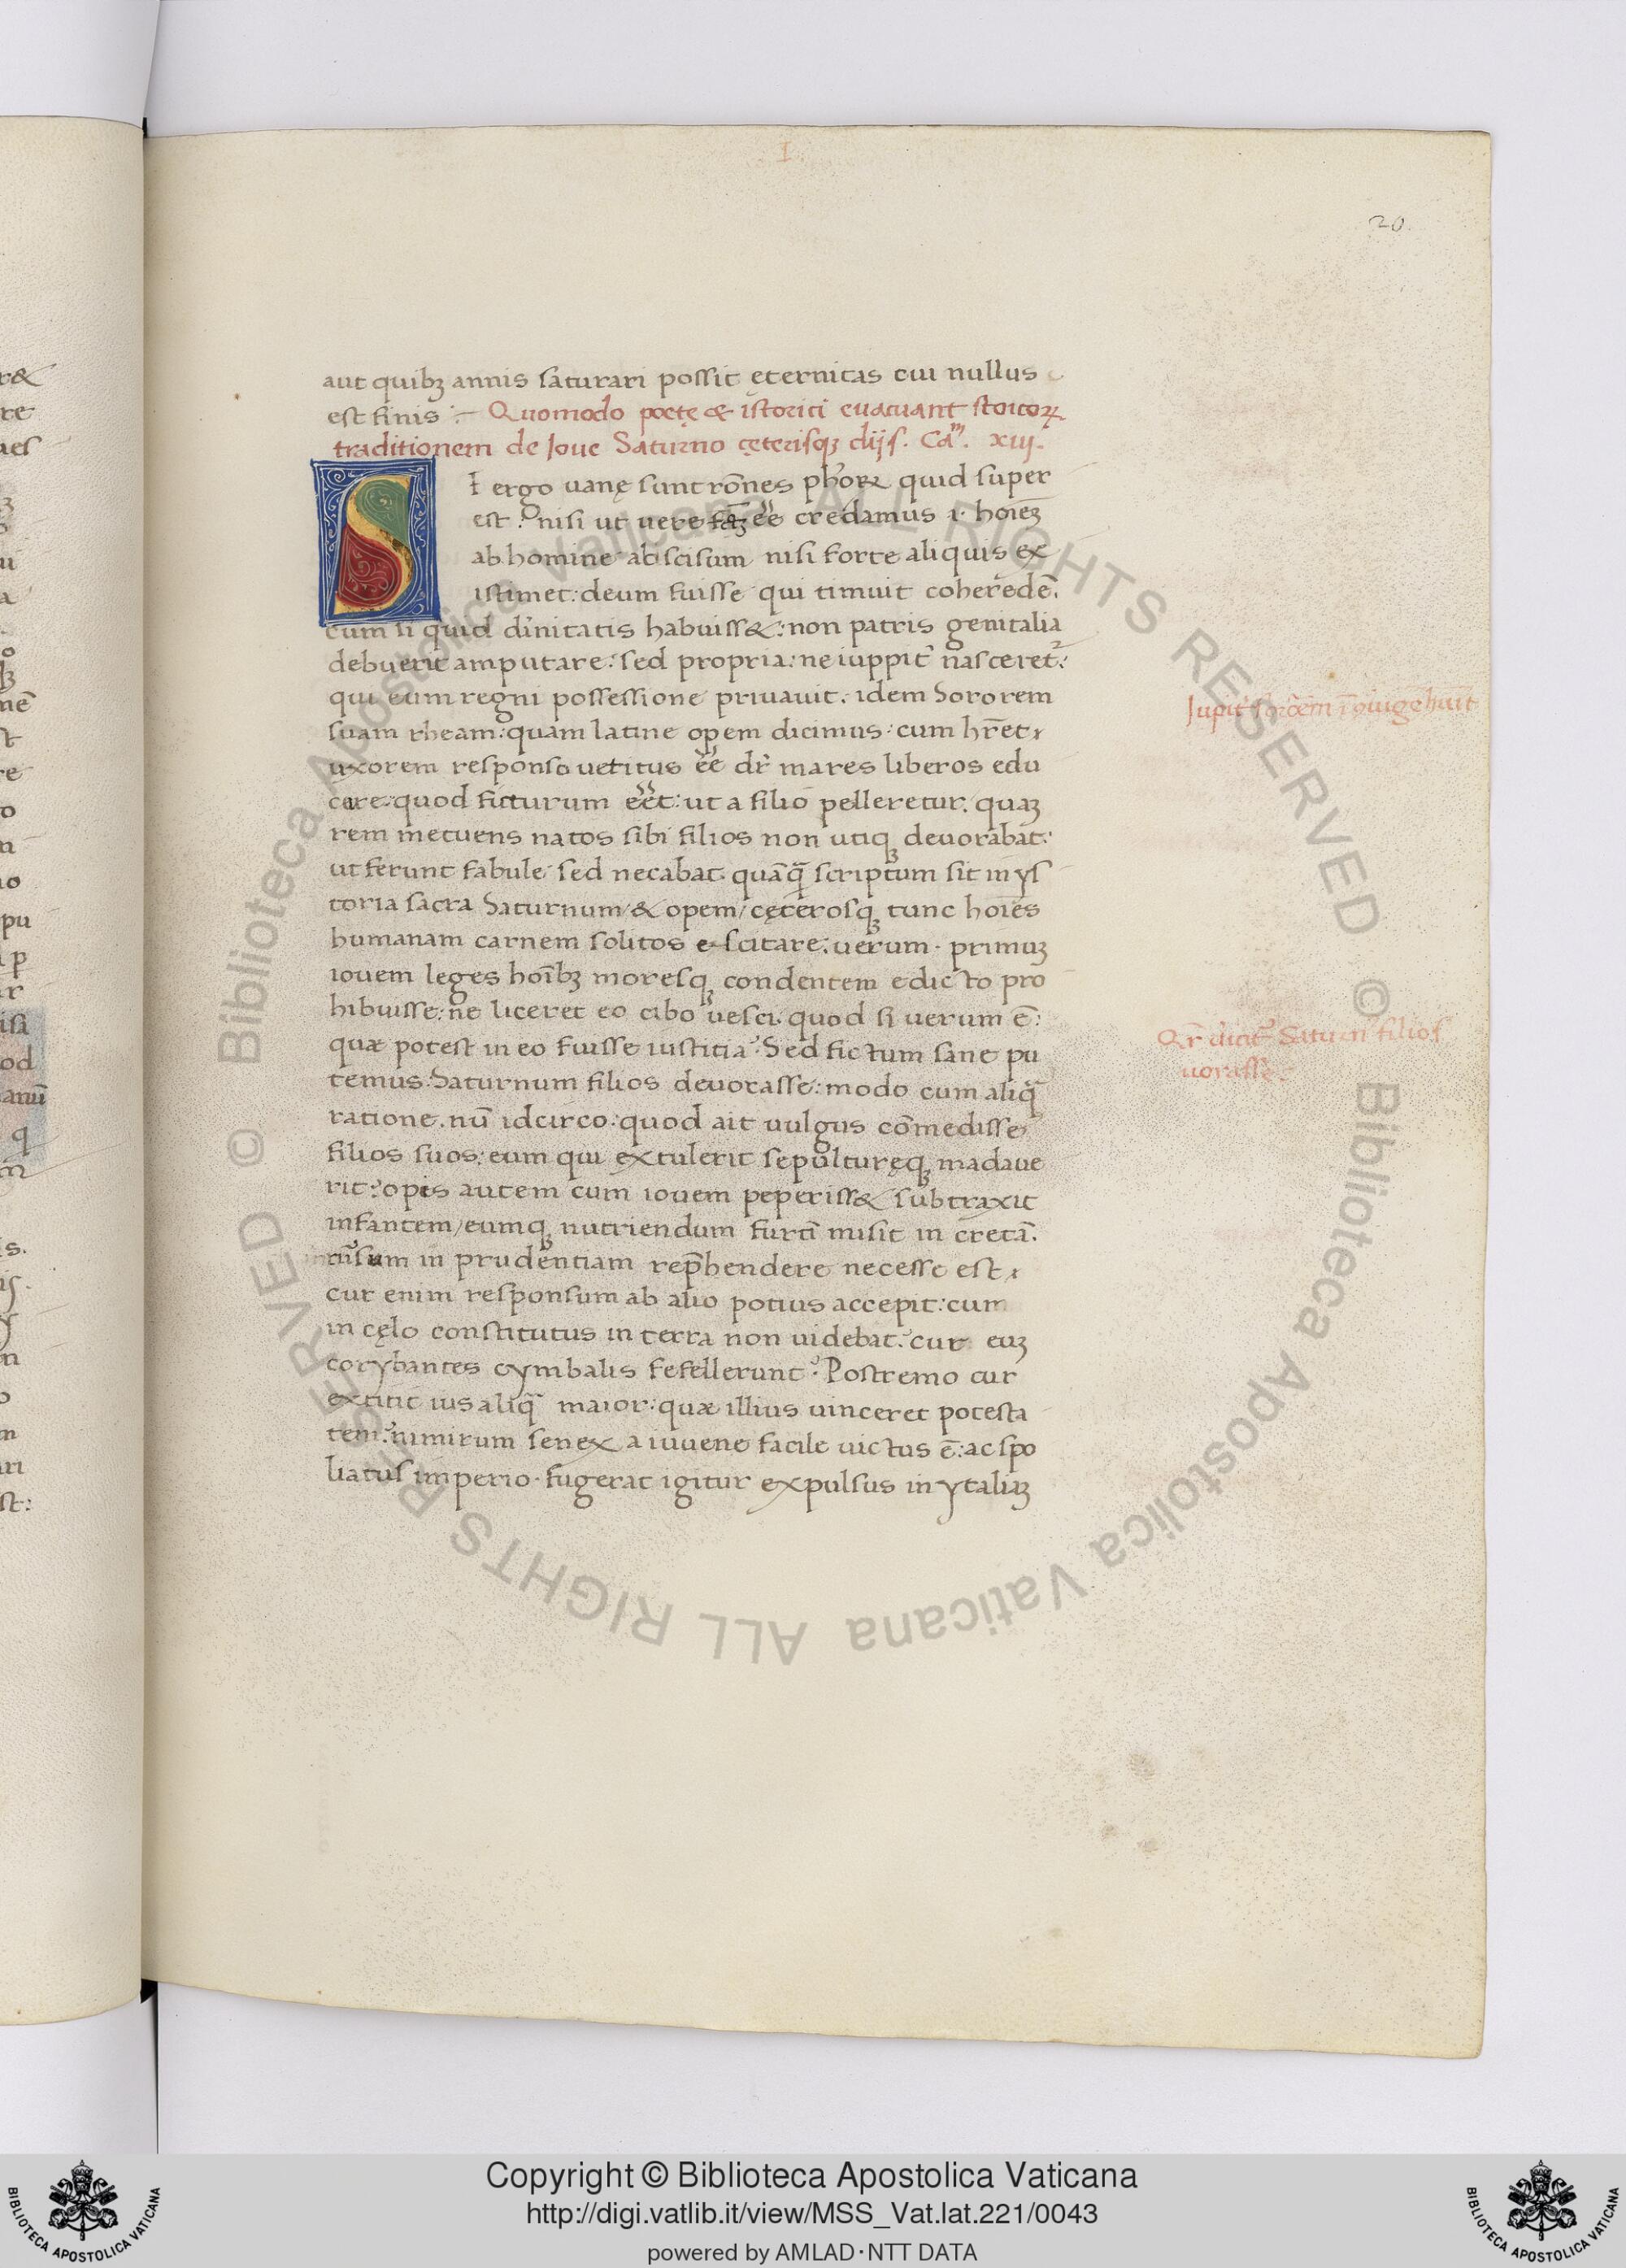 I.
20.
aut quibꝫ annis saturari possit ęternitas cui nullus
est finis :– Quomodo poetę & istorici euacuant stoicoꝝ
traditionem de Ioue Saturno cęterisqꝫ dijs. Ca᷎m. xiij.
SI ergo uanę sunt ro᷎nes ph᷎oꝝ quid super
est? nisi ut uere ee᷎ credamus .i. hoi᷎eꝫ
ab homine abscisum nisi forte aliquis ex
istimet: deum fuisse qui timuit coheredē.
cum si quid di᷎nitatis habuiss&: non patris genitalia
debuerit amputare: sed propria: ne iuppit᷎ nasceret᷎:
qui eum regni possessione priuauit. idem Sororem
suam rheam: quam latine opem dicimus: cum hr̄et,
uxorem responso uetitus ēē dr᷎ mares liberos edu
care: quod futurum ēēt: ut a filio pelleretur. quaꝫ
rem metuens natos sibi filios non utiqꝫ deuorabat:
ut ferunt fabule sed necabat. quāq᷎ scriptum sit in ys
toria sacra Saturnum/& opem/cęterosqꝫ tunc hoīes
humanam carnem solitos escitare: uerum. primuꝫ
iouem leges hoībꝫ moresqꝫ condentem edicto pro
hibuisse: ne liceret eo cibo uesci. quod si uerum ē:
quæ potest in eo fuisse iustitia? Sed fictum sane pu
temus: Saturnum filios deuorasse: modo cum aliq᷎
ratione. nū idcirco: quod ait uulgus cōmedisse
filios suos: eum qui extulerit sepulturęqꝫ madaue
rit? opis autem cum iouem peperiss& subtraxit
infantem/eumqꝫ nutriendum furtī misit in cretā.
rūsum in prudentiam rep̄hendere necesse est,
cur enim responsum ab alio potius accepit: cum
in cęlo constitutus in terra non uidebat? cur euꝫ
corybantes cymbalis fefellerunt? Postremo cur
extitit ius aliq᷎ maior: quæ illius uinceret potesta
tem? nimirum senex a iuuene facile uictus ē: ac spo
liatus imperio. fugerat igitur expulsus in ytaliaꝫ
Iupit᷎ sorōem
Qr᷎ dicit᷎ Saturn filios
uorasse.
Copyright © Biblioteca Apostolica Vaticana
http://digi.vatlib.it/view/MSS_Vat.lat.221/0043
powered by AMLAD·NTT DATA
BIBLIOTECA APOSTOLICA VATICANA
BIBLIOTECA APOSTOLICA VATICANA
© Biblioteca Apostolica Vaticana ALL RIGHTS RESERVED © Biblioteca Apostolica Vaticana ALL RIGHTS RESERVED